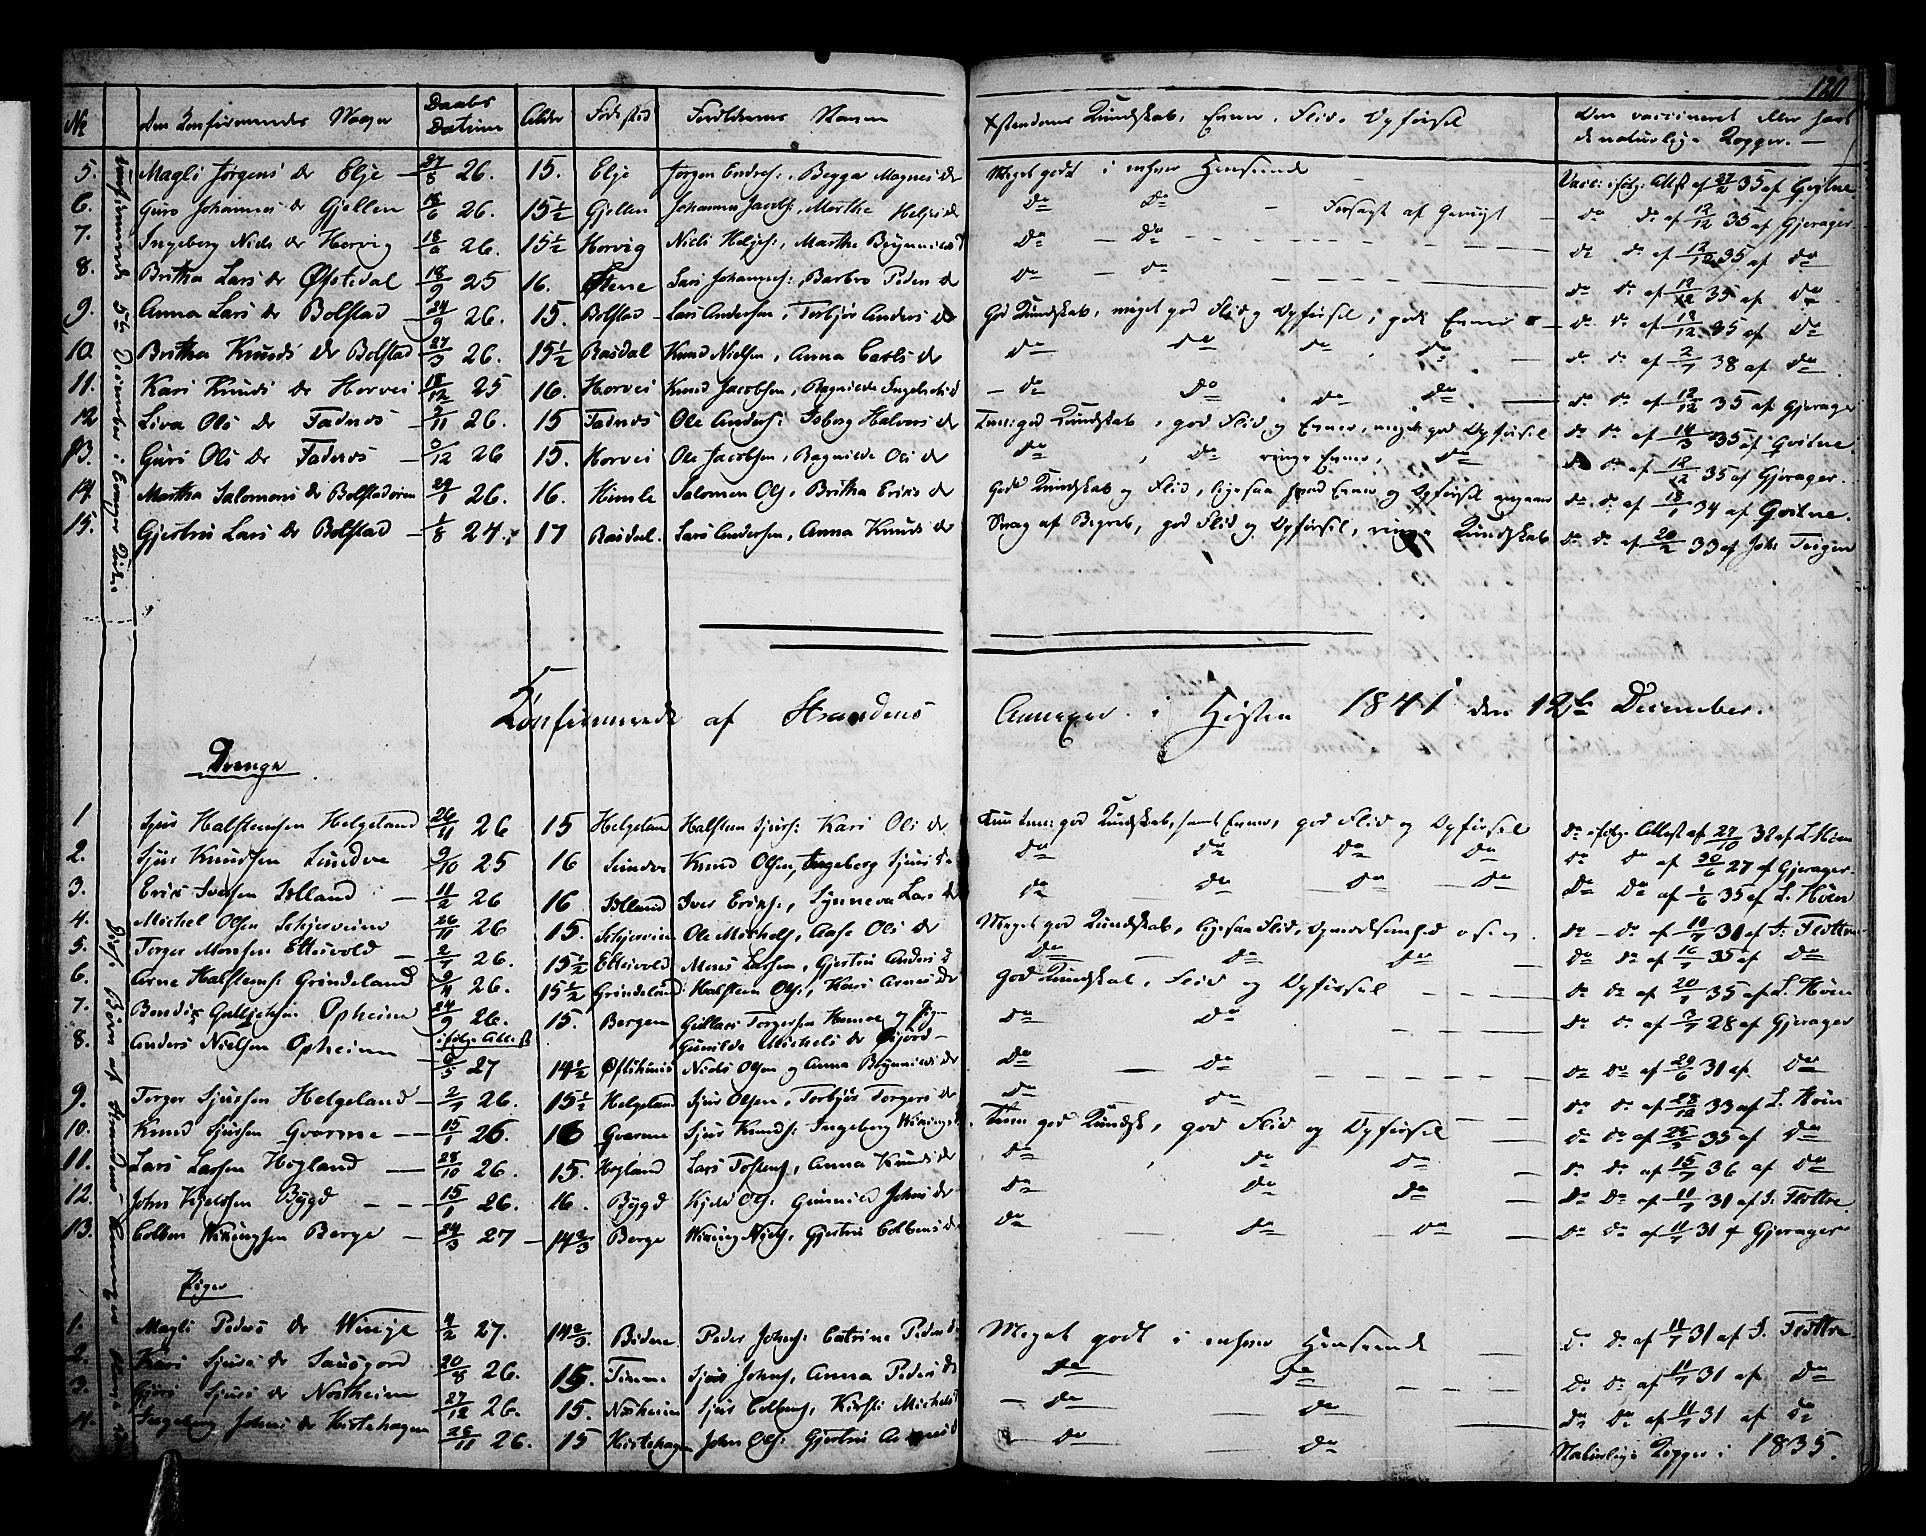 120
No Den Konfirmerendes Navn Daabs Datum Alder Fødested Forældrenes Navne Kundskab, Evner, Flid, Opførsel Om vaccineret eller havt de naturlige Kopper. —
5. Magli Jørgens dr Elje 27/8 26. 15. Elje Jørgen Endres: Magnes dr Meget godt i enhver Henseende Vacc: ifølg: Attest af 35 af Gvitne.
6. Guro Johannes dr Gjellen 18/6 26. 15½ Gjellen Johannes Jacobs: Marthe Helges dr do do Forsagt af Gemyt do do af 12/12 35 af Gjerager
7. Ingeborg Niels dr Horvig 18/6 26. 15½ Horvig Niels Helges:, Martha Brynnilds do do do do af 12/12 35 af do
8. Britha Lars dr Øfstedal 18/9 25 16. Lars Johannes:, Barbro Peders dr do do do do af 12/12 35 af do
9. Anna Lars dr Bolstad 24/9 26. 15. Bolstad Lars Andersen, Torbjør Anders dr God Kundskab, meget god Flid og Opførsel, gode Evner do do af 12/12 35 af do
10. Britha Knuds dr Bolstad 27/3 26. 15½ Rasdal Knud Nielsen, Anna Carls dr do do do do do do af 2/7 38 af do
11. Kari Knuds dr Horvei 18/12 25 16. Horvei Knud Jacobsen, Ragnilde do do do do do do af 12/12 35 af Gjerager
12 Liva Ols dr Fadnes 9/11 26. 15 Fadnes Ole Anders: Isborg Halvors dr god Kundskab, god Flid og Evner, meget god Opførsel do do af 14/3 35 af Gvitne.
13. Guri Ols dr Fadnes 3/12 26 15. Horvei Ole Jacobsen, Ragnilde Ols dr do do ringe Evner, do do do af 12/12 35 af Gjerager.
14. Martha Salomons dr Bolstadøren 29/1 26. 16. Himle Salomon Ols:, Britha Eriks dr God Kundskab og Flid, ligesaa Evner og Opførsel do do af 18/1 34 af Gvitne.
15. Gjertru Lars dr Bolstad 1/8 24. 17 Rasdal. Lars Andersen, Anna Knuds dr Svag af Begreb, god Flid og Opførsel, ringe Kundskab do do af 20/2 33 af Joh: Teigen
Konfirmerede 5te December i Evanger Kirke
Konfirmerede af Strandens Annexer i Høsten 1841 den 12te December.
Drenge
1 Sjur Halsteinsen Helgeland 26/11 26 15 Helgeland Halstein Sjurs: Kari Ols dr god Kundskab, samt Evner, god Flid og Opførsel do ifølge Attest af 27/10 32 af L. Høen
2. Sjur Knudsen Lundve 9/10 25 16 Lundve Knud Olsen, Ingeborg Sjurs dr do do do do do do af 30/6 27 af Gjerager.
3. Erik Iversen Istland 11/2 26 16 Istland Iver Eriks:, Synneva Lars dr do do do do do do af 1/6 35 af L. Høen
4. Michel Olsen Skjerveim 26/11 26 15. Skjerveim Ole Michels:, Aase Ols dr Meget god Kundskab, ligesaa Flid, Opmærksomhed osv. do do af 11/7 31 af I: Flottre
5. Torger Monsen Ettesvold 2/7 26. 15½ Ettesvold Mons Larsen, Gjertru Anders d do do do do do af 16/7 35 af do
6. Arne Halsteins: Grindeland 9/4 26. 15½ Grindeland Halstein Ols:, Kari Arnes dr god Kundskab, Flid og Opførsel do do af 20/7 35 af L. Høen
7. Bendix Gullachsen Opheim 24/9 26. 15. Bergen Gullach Torgersen og do do do do af 3/7 28 af Gjerager
ifølge Attest Gunilde Michels dr
8. Anders Nielsen Opheim 6/5 27 14½ Niels Olsen og Anna Brynnilds dr do do do do af 29/6 31 af do
9. Torger Sjursen Helgeland 2/7 26. 15½ Helgeland Sjur Olsen, Torbjør Torgers dr do do do do af 28/12 33 af L. Høen
10. Knud Sjursen Gvarme 15/1 26. 16 Gvarme Sjur Knuds: Ingeborg Wikings god Kundsk, god Flid og Opførsel do do af 35 af do
11. Lars Larsen Høgland 28/10 26. 15. Høgland Lars Tostens:, Anna Knuds dr do do do do do af 15/7 36 af do
12. John Kjelssen Bygd 15/1 26. 16. Bygd Kjeld Ols: Gunnild Johns dr do do do do do af 11/7 31 af I: Flottre
13. Colben Wikingsen Berge 24/3 27 14⅔ Berge Wiking Niels:, Gjertru Colbens dr do do do do do af 11/7 31 af Gjerager
Piger
1. Magli Peders dr Winje 4/2 27. 14⅔ Peder Johns: Catrine Peders d: Meget godt i enhver Henseende do do af 11/7 31 af I. Flottre
2. Kari Sjurs dr Sausgord 20/8 26. 15. Sjur Johns:, Anna Peders dr do do do do af 11/7 31 af do
3. Guri Sjurs dr Norheim 27/12 26. 15. Norheim Sjur Colbens:, Kirsti Michels d do do do do af 11/7 31 af do
4. Ingeborg Johns dr Kirkehagen 28/11 26. 15 Kirkehagen John Ols: Gjertru do do Naturlige Kopper i 1835.